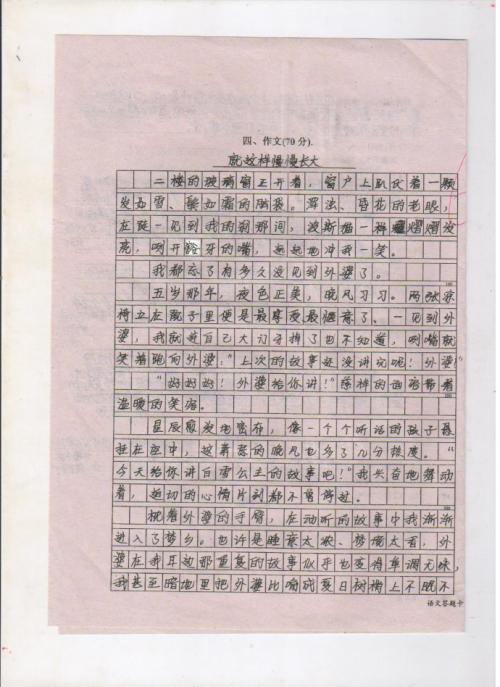 四、作文(70分).
就这样慢慢长大
二楼的玻璃窗正开着，窗户上趴伏着一颗
发如雪、鬓如霜的脑袋。浑浊、昏花的老眼，
在陡一见到我的刹那间，波斯猫一样熠熠发
亮，咧开豁牙的嘴，起起地冲我一笑。
我都忘了有多久没见到外婆了。
五岁那年，夜色正美，晚风习习。两张凉
椅立在院子里便是最享受最惬意了、一见到外
婆，我就连自己大门牙掉了也不知道，咧嘴就
笑着跑向外婆："上次的故事还没讲完呢！外婆！"
"好好好！外婆给你讲！"慈祥的面容带着
温暖的笑容。
星辰愈发地密布，像一个个听话的孩子悬
挂在空中，这着急的晚风也多了几分热度。"
今天给你讲白雪公主的故事吧！"我兴奋地舞动
着，迫切的心情片刻都不曾停过。
枕着外婆的手臂，在动听的故事中我渐渐
进入了梦乡。也许是睡意太浓、梦境太香，外
婆在我耳边那重复的故事似乎也变得单调无味，
我甚至暗地里把外婆比喻成夏日树梢上不眠不
语文答题卡